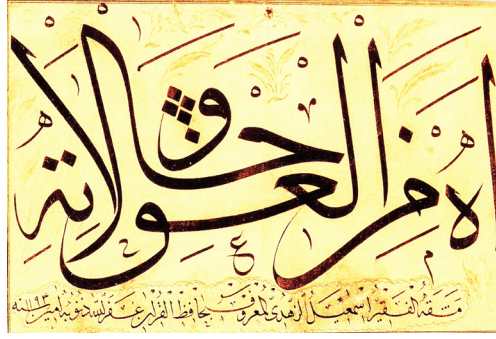 اه من العشق وحالاته
مشقه الفقير اسمعيل الزهدى المعروف بحافظ القرآن غفر الله ذنوبه امين سنه